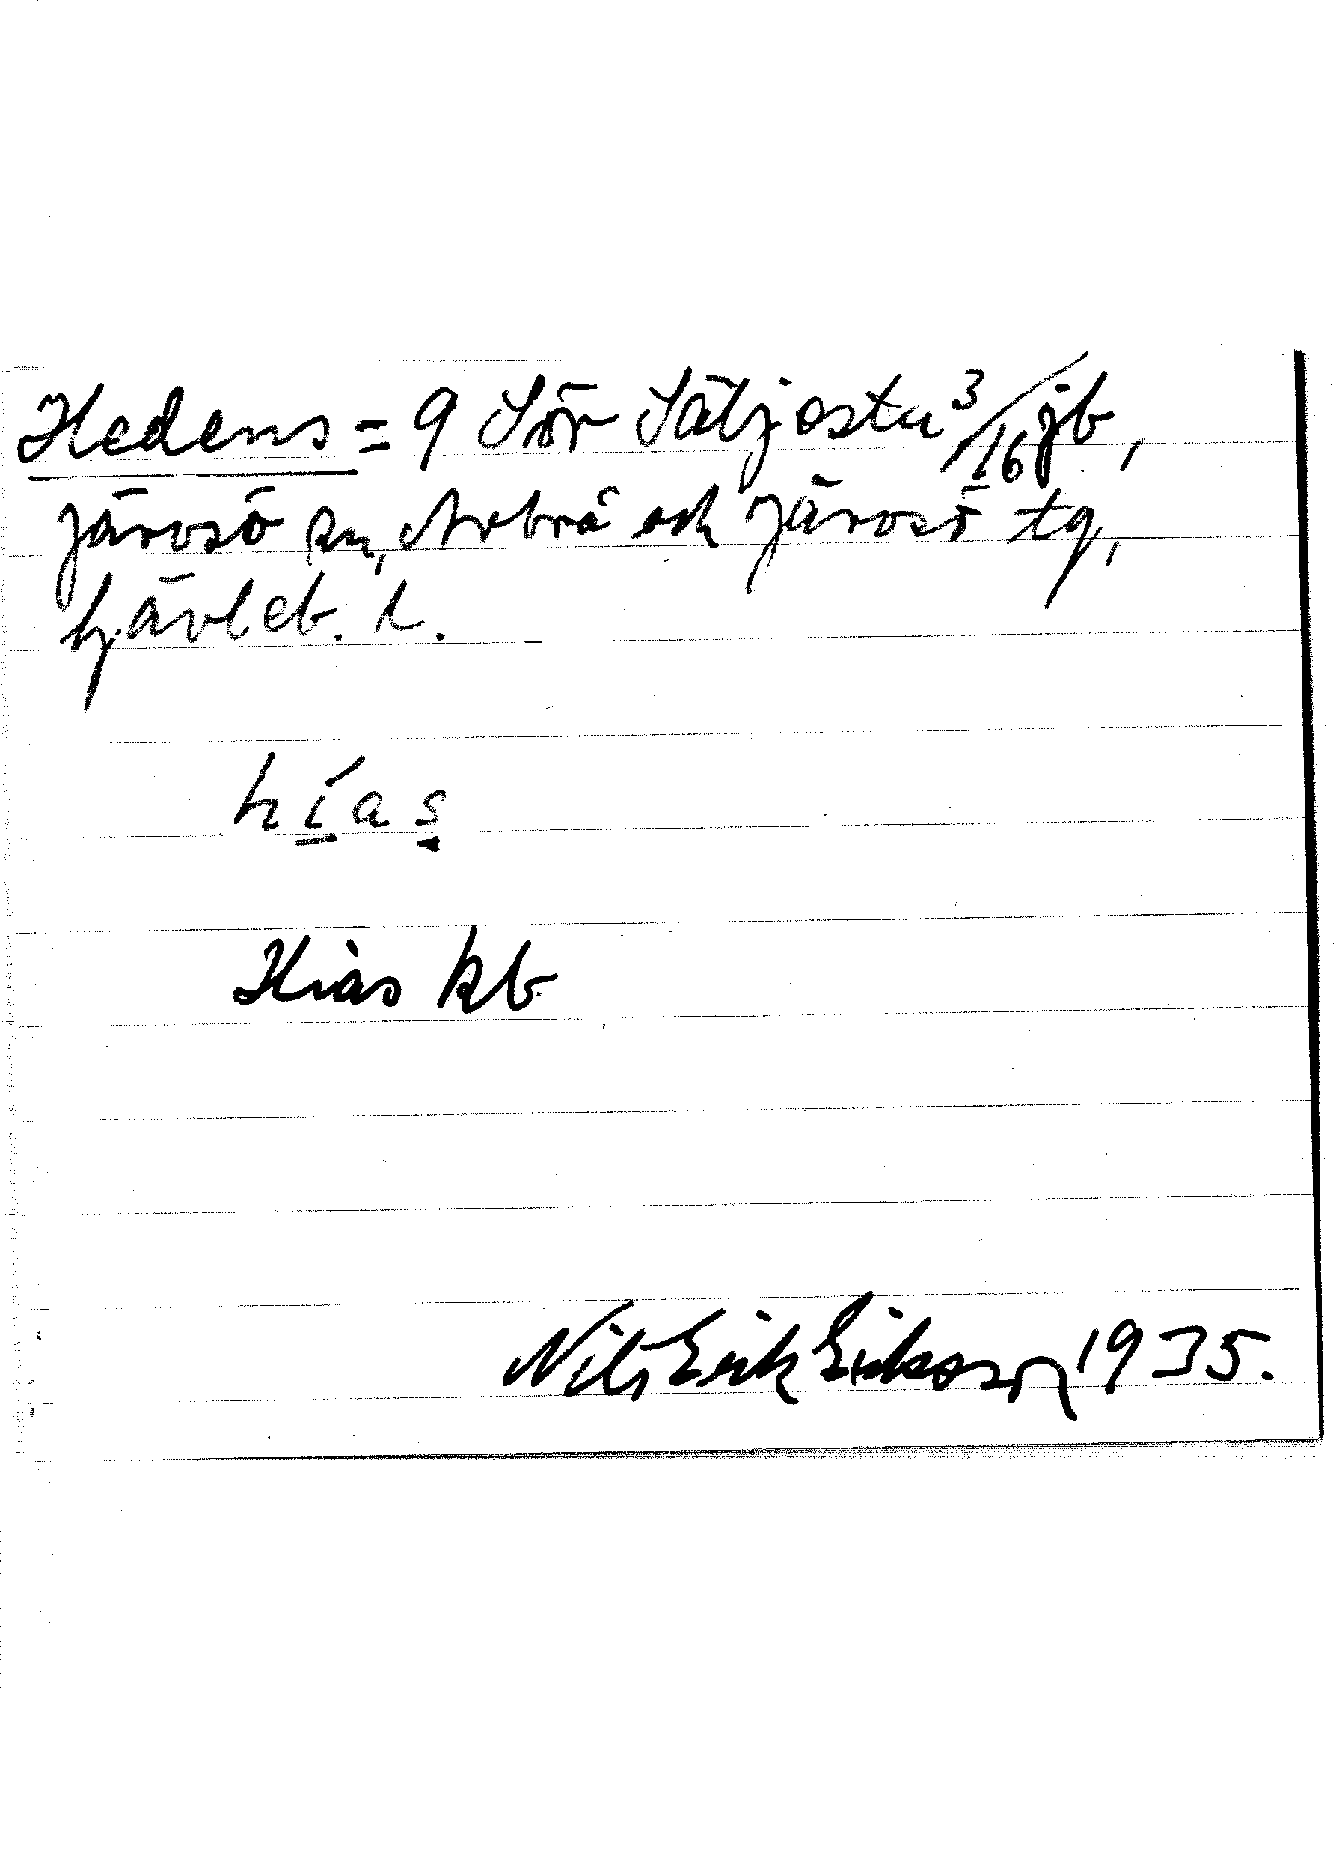 Hedens = 9 Sör Säljesta 3/16 jb,
Järvsö sn, Arbrå och Järvsö tg,
Gävleb. l.
hías
Hias kb
Nils Erik Eriksson 1935.